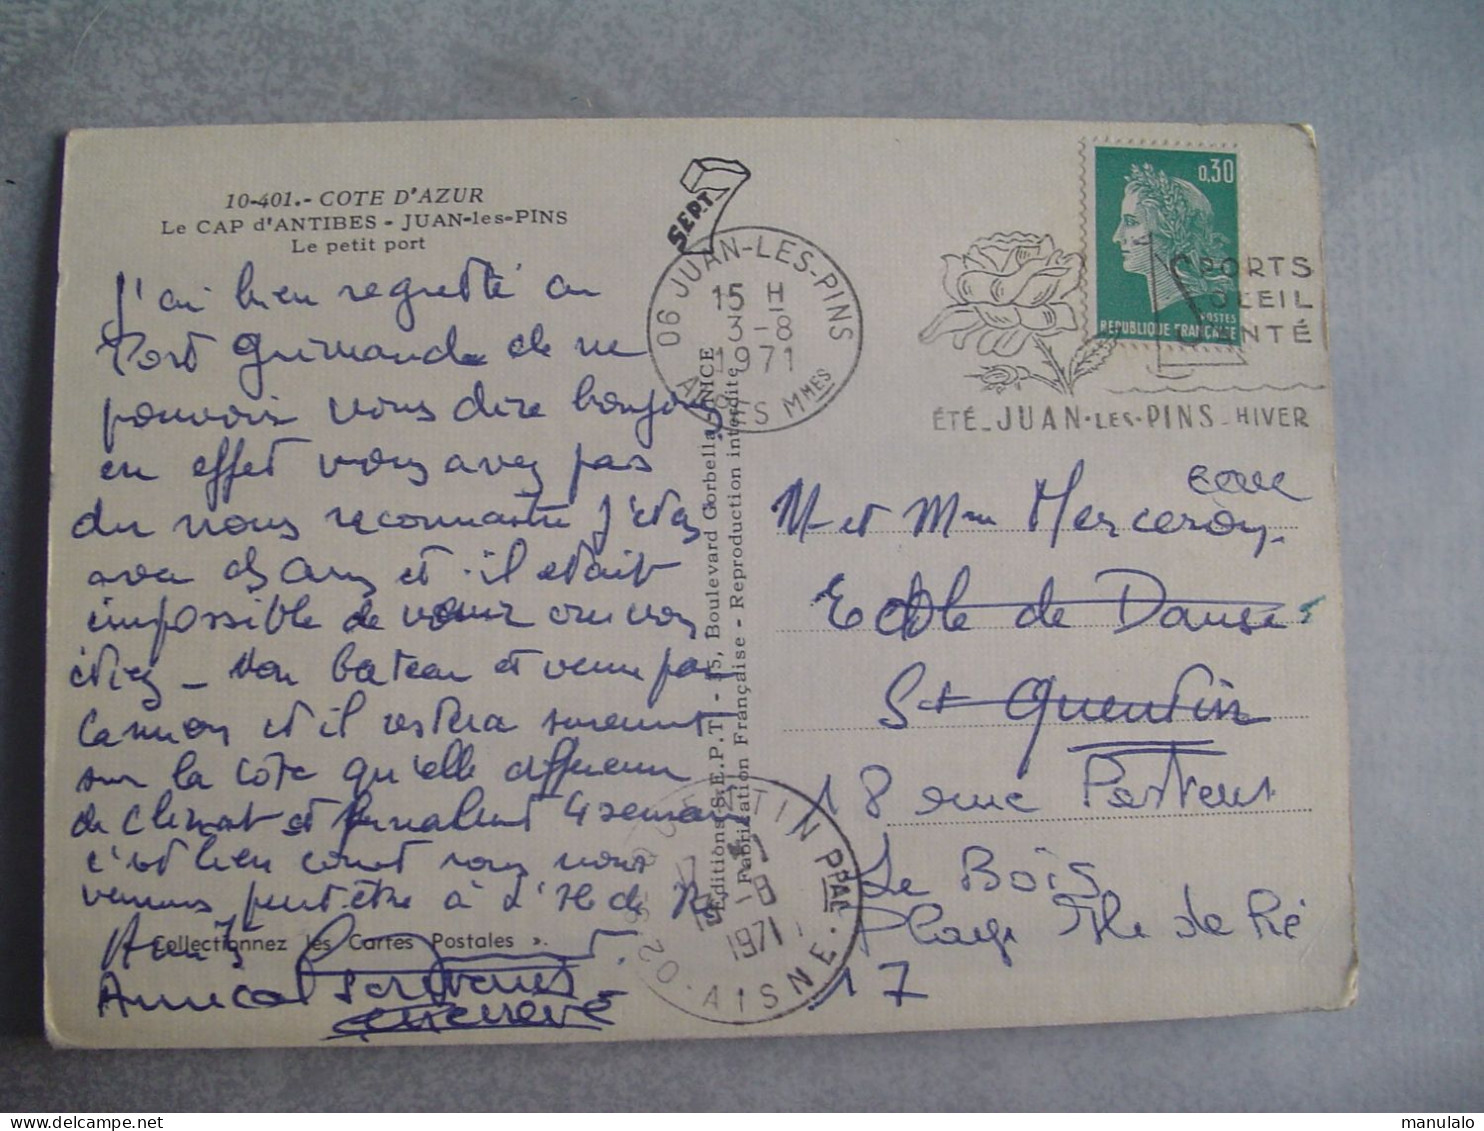 10-401.- COTE D'AZUR
Le CAP d'ANTIBES - JUAN-les-PINS
Le petit port
J'ai bien regretté au
Port Grimaud de ne
pouvoir vous dire bonjour
en effet vous avez pas
du nous reconnaitre j'étais
avec et il etait
impossible de venir ou vous
étiez _ Mon bateau et venu par
Camion et il restera surement
sur la cote qu'elle difference
de Climat et finalement 4 semaines
c'est bien court nous nous
verrons peut être à L'Ile de Ré
Amical
« Collectionnez les Cartes Postales ».
Editions S.E.P.T. - 5, Boulevard Gorbella, NICE
Fabrication Française - Reproduction interdite
SEPT
06 JUAN-LES-PINS
15 H
3-8
1971
ALPES MMES
0,30
POSTES
REPUBLIQUE FRANÇAISE
SPORTS
SOLEIL
SANTÉ
ÉTÉ_JUAN-LES-PINS_HIVER
M et Mme Merceron
Ecole de Danse
St Quentin
18 rue Pasteur
Le Bois
Plage Ile de Ré
17
02 ST QUENTIN PPAL
-8
1971
AISNE
manulalo